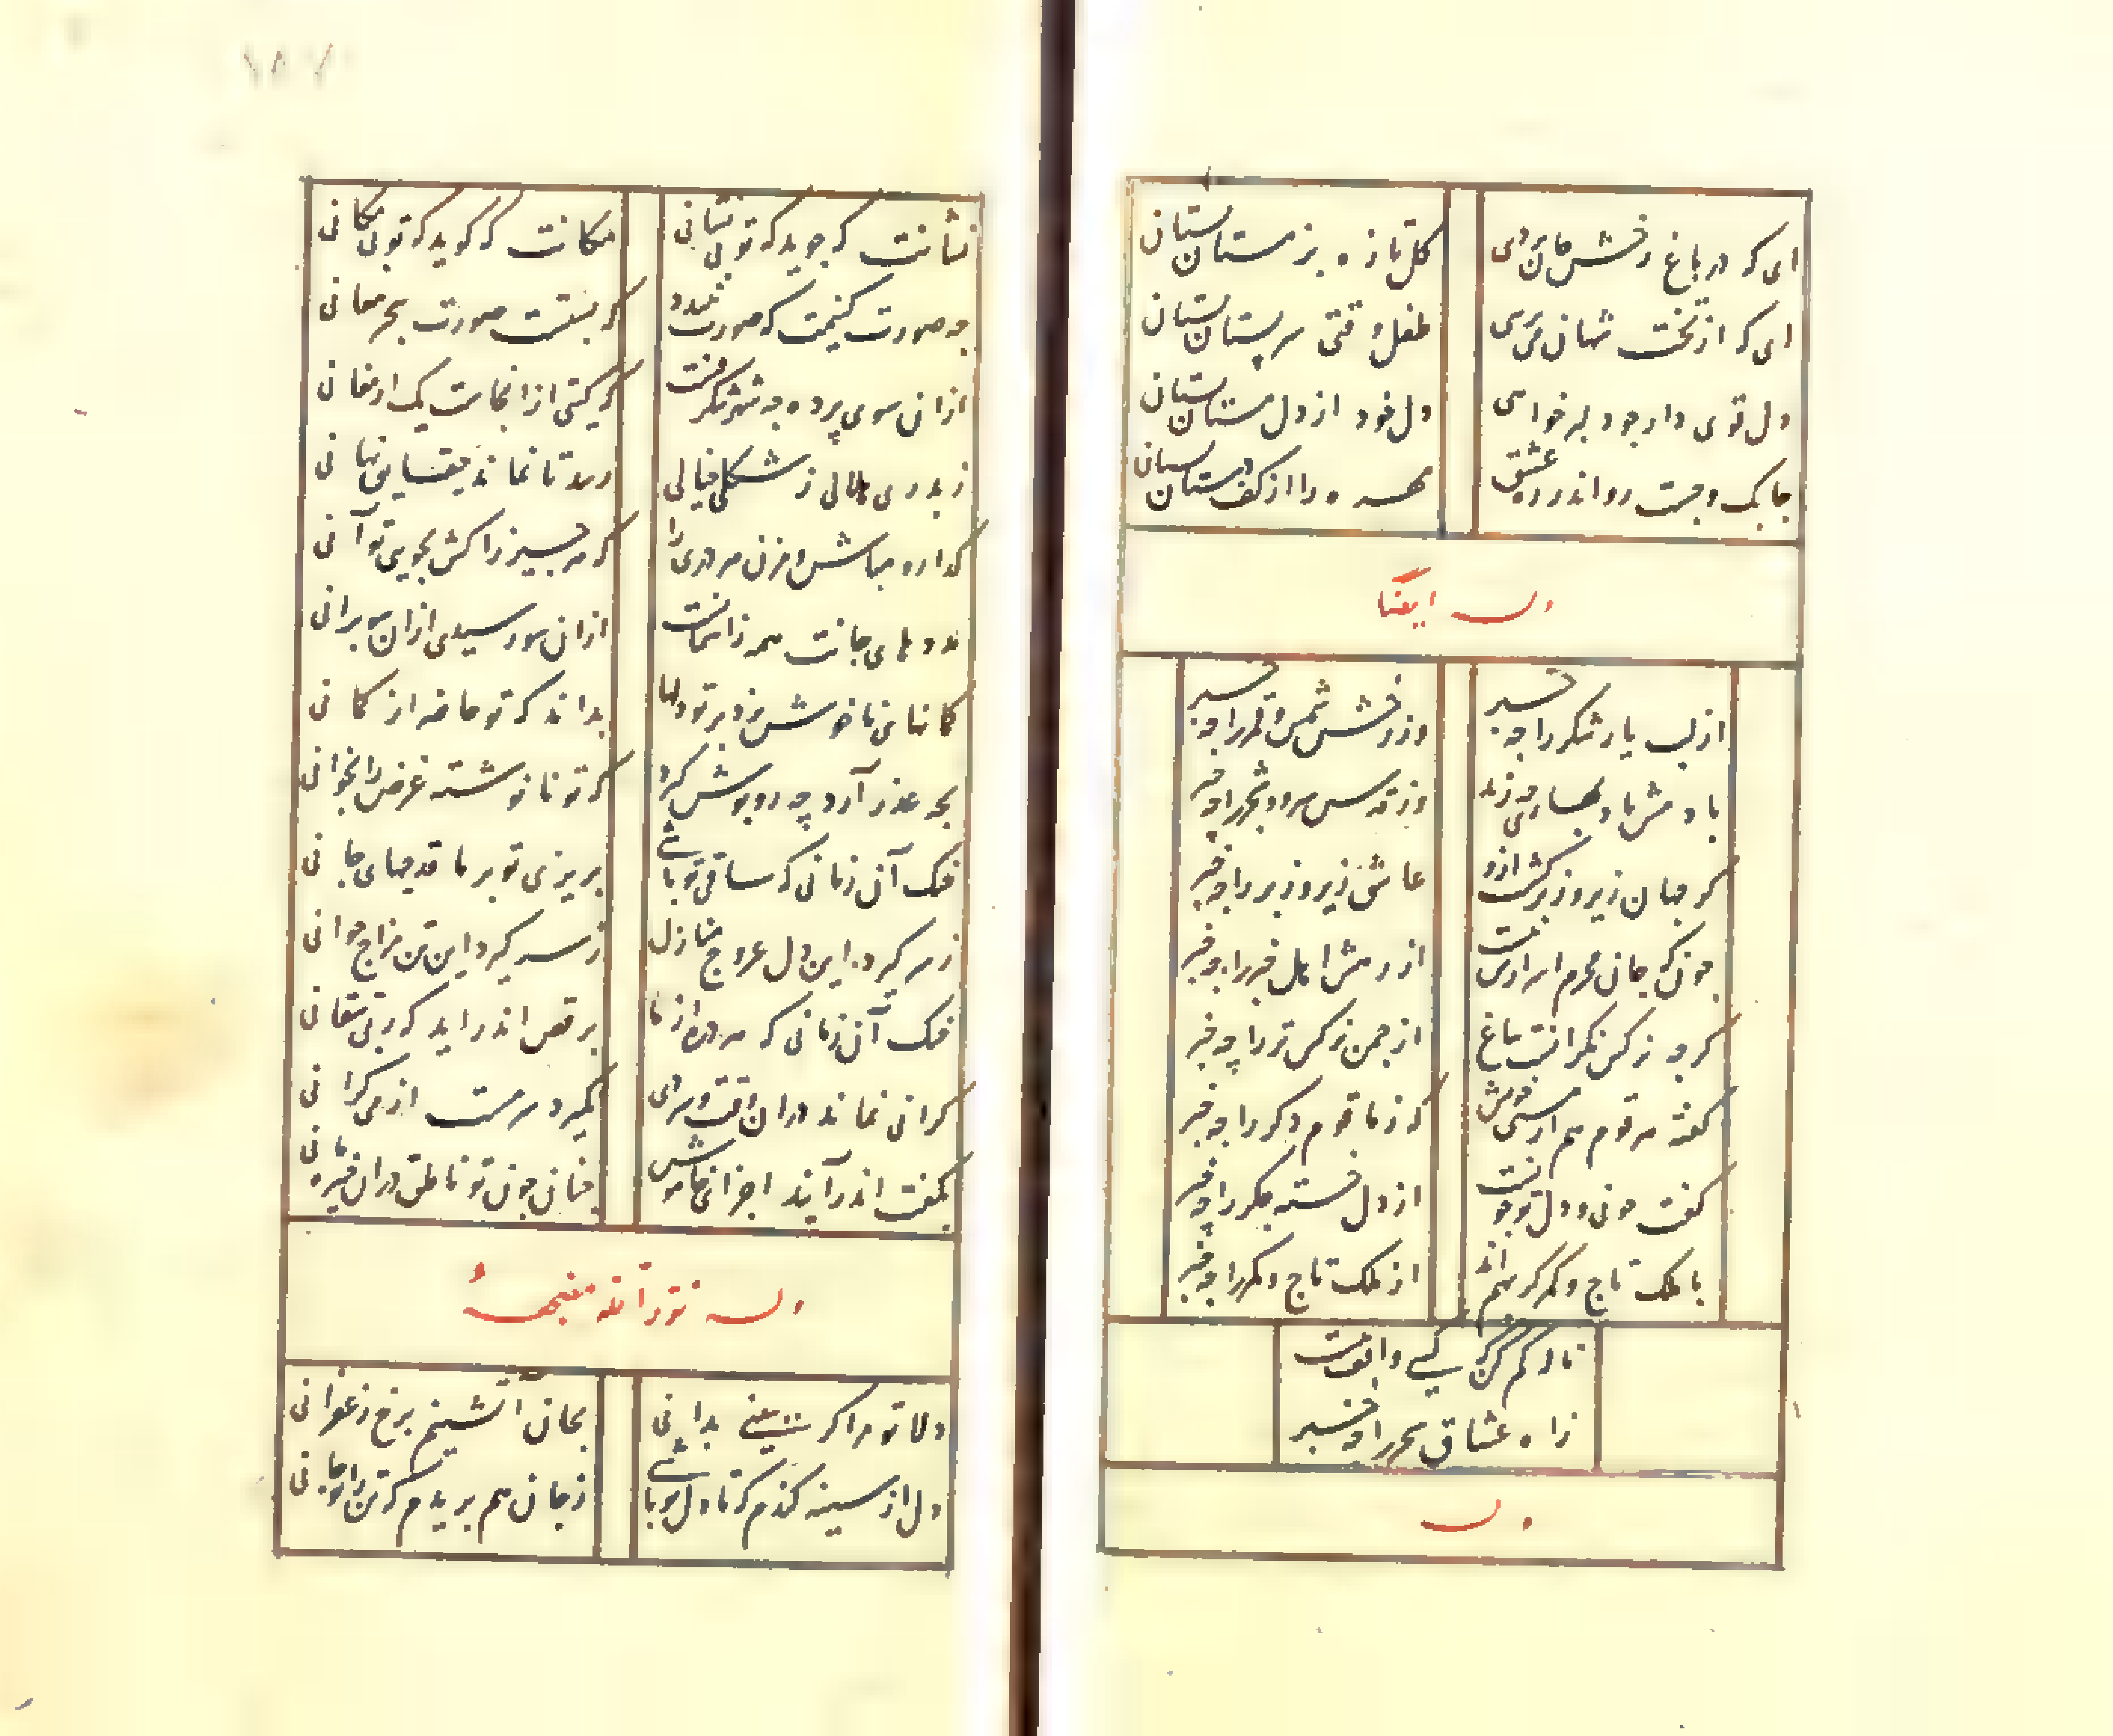 ای که در باغ رخش جان بری
گل تازه بزمستان بستان
ای که از تخت شهان می‌ترسی
طفل وقتی سر پستان بستان
دل قوی دار چو دلبر خواهی
دل خود از دل مستان بستان
چابک و چست رو اندر ره عشق
مهره را از کف دستان بستان
وله ایضا
از لب یار شکر را چه خبر
وز رخش شمس و قمر را چه خبر
با دمش باد بهاری چه زند
وز قدش سرو و شجر را چه خبر
گر جهان زیر و زبر گشت ازو
عاشق زیر و زبر را چه خبر
چونکه جان محرم اسرارش نیست
از رهش اهل خبر را چه خبر
گرچه نرگس نگرانست بباغ
از چمن نرگس تر را چه خبر
گفته هر قوم هم از مستی خویش
که ز ما قوم دگر را چه خبر
گفت چونی و دل تو چونست
از دل خسته جگر را چه خبر
با ملک تاج و کمر گر بهم‌اند
از ملک تاج و کمر را چه خبر
ناله کم کن که کسی واقف نیست
ز آه عشاق سحر را چه خبر
وله
نشانت که جوید که تو بی نشانی
مکانت که گوید که تو بی مکانی
چه صورت کنیمت که صورت نبندد
که بستست صورت بحر معانی
از آن سوی پرده چه شهر شگرفست
که گیتی از آنجاست یک ارمغانی
ز بدری هلالی ز شکلی خیالی
رسد تا نماند حقیقت نهانی
گدارو مباش و مزن هر دری را
که هر چیز را کش بجویی تو آنی
مددهای جانت همه ز آسمانست
از آن سو رسیدی از آن سو روانی
گمانهای ناخوش برد بر تو دلها
بداند که تو حاضر از گمانی
بچه عذر آرد چه روپوش کرد
که تو نانوشته غرض را بخوانی
خنک آن زمانی که ساقی تو باشی
بریزی تو بر ما قدحهای جانی
ز سر گیرد این دل عروج منازل
ز سر گیرد این تن مزاج جوانی
خنک آن زمانی که هر پاره از ما
برقص اندر آید که ربی سقانی
گرانی نماند در آن وقت و سردی
بگیرد سرمست از می گرانی
بگفت اندر آیند اجزای خاموش
چنان چون تو ناطق در آن خیره مانی
وله نور الله مضجعه
دلا تو مرا گر نبینی بدانی
بجان آتشینم برخ زعفرانی
دل از سینه کندم که تا دل تو باشی
ز جان هم بریدم که تن را تو جانی